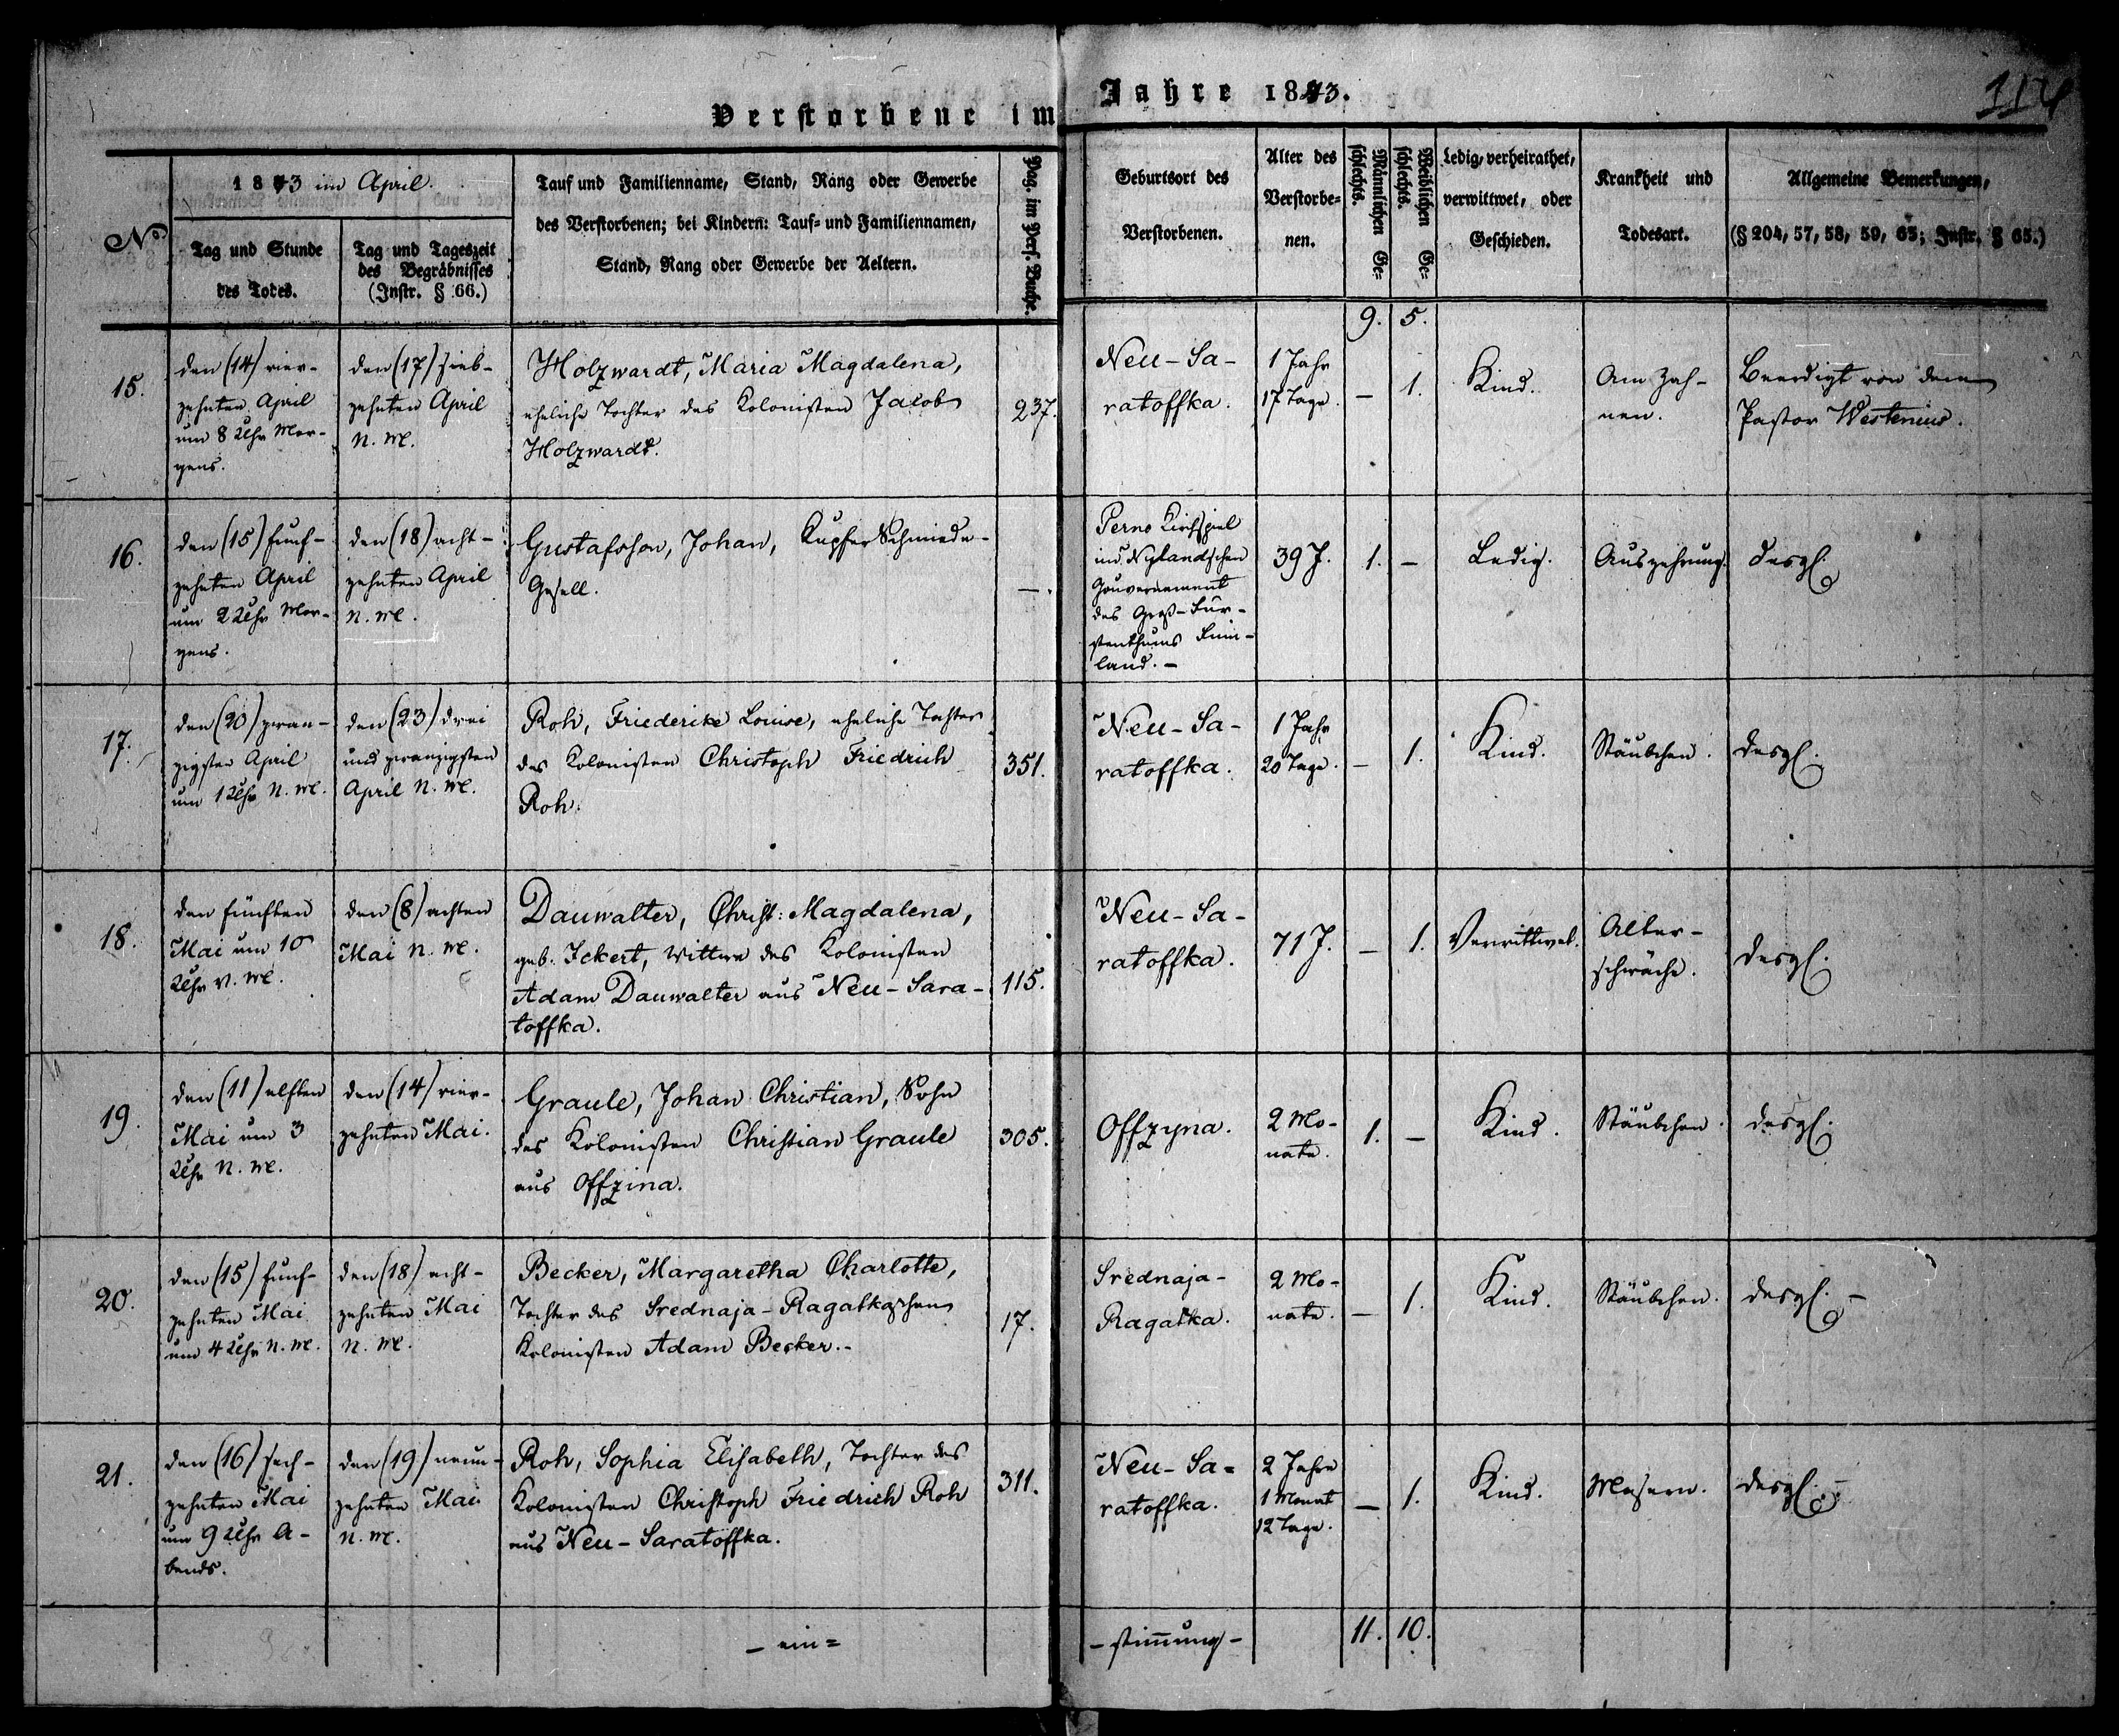 Verstorbene im Jahre 1843.
114
No
1843 im April.
Tag und Stunde
des Todes.
Tag und Tageszeit
des Begräbnisses
(Instr. § 66.)
Tauf und Familienname, Stand, Rang oder Gewerbe
des Verstorbenen; bei Kindern: Tauf- und Familiennamen,
Stand, Rang oder Gewerbe der Aeltern.
Pag. im Pers. Buche.
Geburtsort des
Verstorbenen.
Alter des
Verstorbe-
nen.
Männlichen Ge-
schlechts.
Weiblichen Ge-
schlechts.
Ledig, verheirathet,
verwittwet, oder
Geschieden.
Krankheit und
Todesart.
Allgemeine Bemerkungen,
(§ 204, 57, 58, 59, 65; Instr. § 65.)
9. 5.
15.
den (14) vier-
zehnten April
um 8 Uhr Mor-
gens.
den (17) sieb-
zehnten April
N. M.
Holzwardt, Maria Magdalena,
eheliche Tochter des Kolonisten Jacob
Holzwardt.
237.
Neu-Sa-
ratoffka.
1 Jahr
17 Tage.
—
1.
Kind.
Am Zah-
nen.
Beerdigt von dem
Pastor Westenius.
16.
den (15) funf-
zehnten April
um 2 Uhr Mor-
gens.
den (18) acht-
zehnten April
N. M.
Gustafsson, Johan, Kupfer Schmiede-
Gesell.
—.
Perno Kirchspiel
im Nylandschen
Gouvernement
des Groß-Für-
stenthums Finn-
land. —
39 J.
1.
—
Ledig.
Auszehrung.
desgl.
17.
den (20) zwan-
zigsten April
um 1 Uhr N. M.
den (23) drei
und zwanzigsten
April N. M.
Roh, Friederike Louise, eheliche Tochter
des Kolonisten Christoph Friedrich
Roh.
351.
Neu-Sa-
ratoffka.
1 Jahr
20 Tage.
—
1.
Kind.
Stäubchen.
desgl.
18.
den fünften
Mai um 10
Uhr V. M.
den (8) achten
Mai N. M.
Dauwalter, Christ: Magdalena,
geb. Ickert, Wittwe des Kolonisten
Adam Dauwalter aus Neu-Sara-
toffka.
115.
Neu-Sa-
ratoffka.
71 J.
—
1.
Verwittwet.
Alter-
schwäche.
desgl.
19.
den (11) elften
Mai um 3
Uhr N. M.
den (14) vier-
zehnten Mai.
Graule, Johan Christian, Sohn
des Kolonisten Christian Graule
aus Offzina.
305.
Offzyna.
2 Mo-
nate.
1.
—
Kind.
Stäubchen.
desgl.
20.
den (15) funf-
zehnten Mai
um 4 Uhr N. M.
den (18) acht-
zehnten Mai
N. M.
Becker, Margaretha Charlotte,
Tochter des Srednaja-Ragatkaschen
Kolonisten Adam Becker.-
17.
Srednaja-
Ragatka.
2 Mo-
nate.
—
1.
Kind.
Stäubchen.
desgl. —
21.
den (16) sech-
zehnten Mai
um 9 Uhr A-
bends.
den (19) neun-
zehnten Mai
N. M.
Roh, Sophia Elisabeth, Tochter des
Kolonisten Christoph Friedrich Roh
aus Neu-Saratoffka.
311.
Neu-Sa=
ratoffka.
2 Jahre
1 Monat
12 Tage.
—
1.
Kind.
Masern.
desgl. —
— ein=
-stimmung-
11. 10.